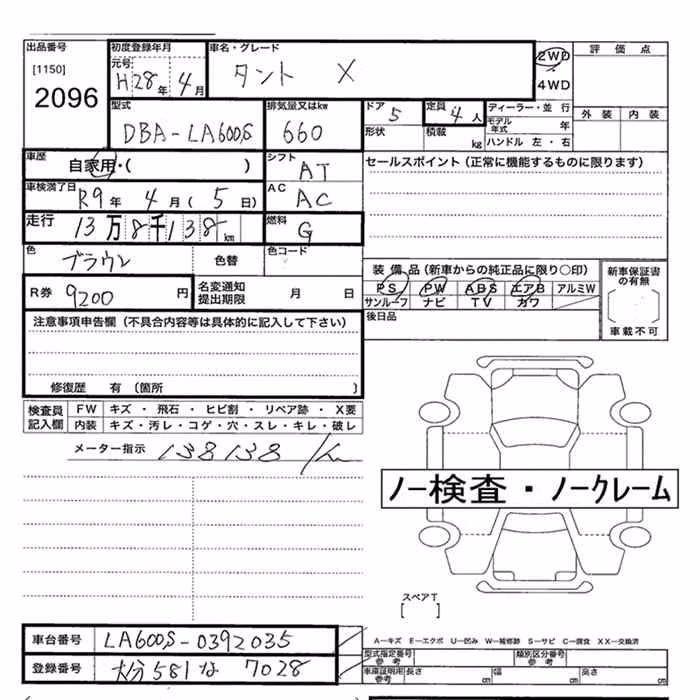 出品番号
[1150]
2096
初度登録年月
元号
H 28年 4月
車名・グレード
タント X
2WD
4WD
評価点
外装 内装
型式
DBA-LA600S
排気量又はkw
660
ドア 5
形状
定員 4人
積載 kg
ディーラー・並行
モデル年式 年
ハンドル 左・右
車歴
自家用・( )
シフト
AT
セールスポイント(正常に機能するものに限ります)
車検満了日
R9年 4月(5日)
AC
AC
走行
13万8千138km
燃料
G
色
ブラウン
色替
色コード
装備品(新車からの純正品に限り○印)
PS PW ABS エアB アルミW
サンルーフ ナビ TV カワ
後日品
新車保証書の有無
車載不可
R券
9200円
名変通知
提出期限
月 日
注意事項申告欄(不具合内容等は具体的に記入して下さい)
修復歴 有(箇所 )
検査員
記入欄
FW キズ・飛石・ヒビ割・リペア跡・X要
内装 キズ・汚レ・コゲ・穴・スレ・キレ・破レ
メーター指示 138138 km
ノー検査・ノークレーム
スペアT
[ ]
車台番号 LA600S-0392035
登録番号 大分 581 な 7028
A-キズ E-エクボ U-凹み W-補修跡 S-サビ C-腐食 XX-交換済
型式指定番号
参考
類別区分番号
参考
車庫証明用
参考
長さ cm 幅 cm 高さ cm